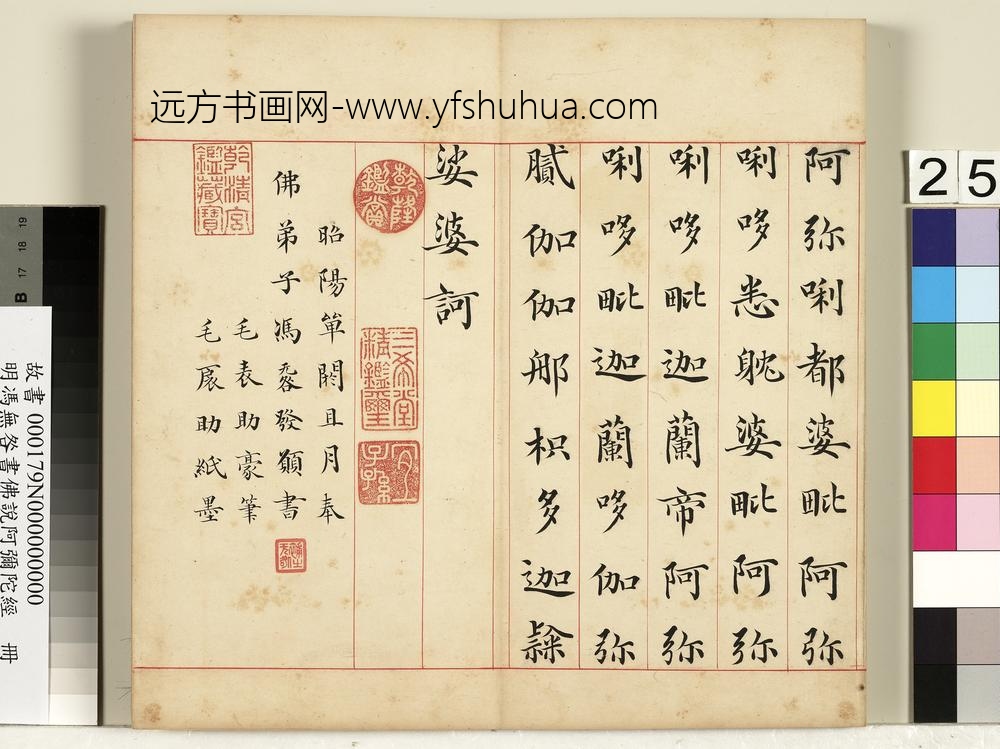 远方书画网-www.yfshuhua.com
阿弥唎都婆毗阿弥
唎哆悉躭婆毗阿弥
唎哆毗迦蘭帝阿弥
唎哆毗迦蘭哆伽弥
膩伽伽那枳多迦隸
娑婆訶
乾隆鑑賞
三希堂精鑑璽
宜子孫
昭陽單閼且月奉
佛弟子馮發願書
毛表助豪筆
毛扆助紙墨
乾清宮鑑藏寶
25
19
18
17
B
故書 000179N000000000
明馮無咎書佛說阿彌陀經 冊